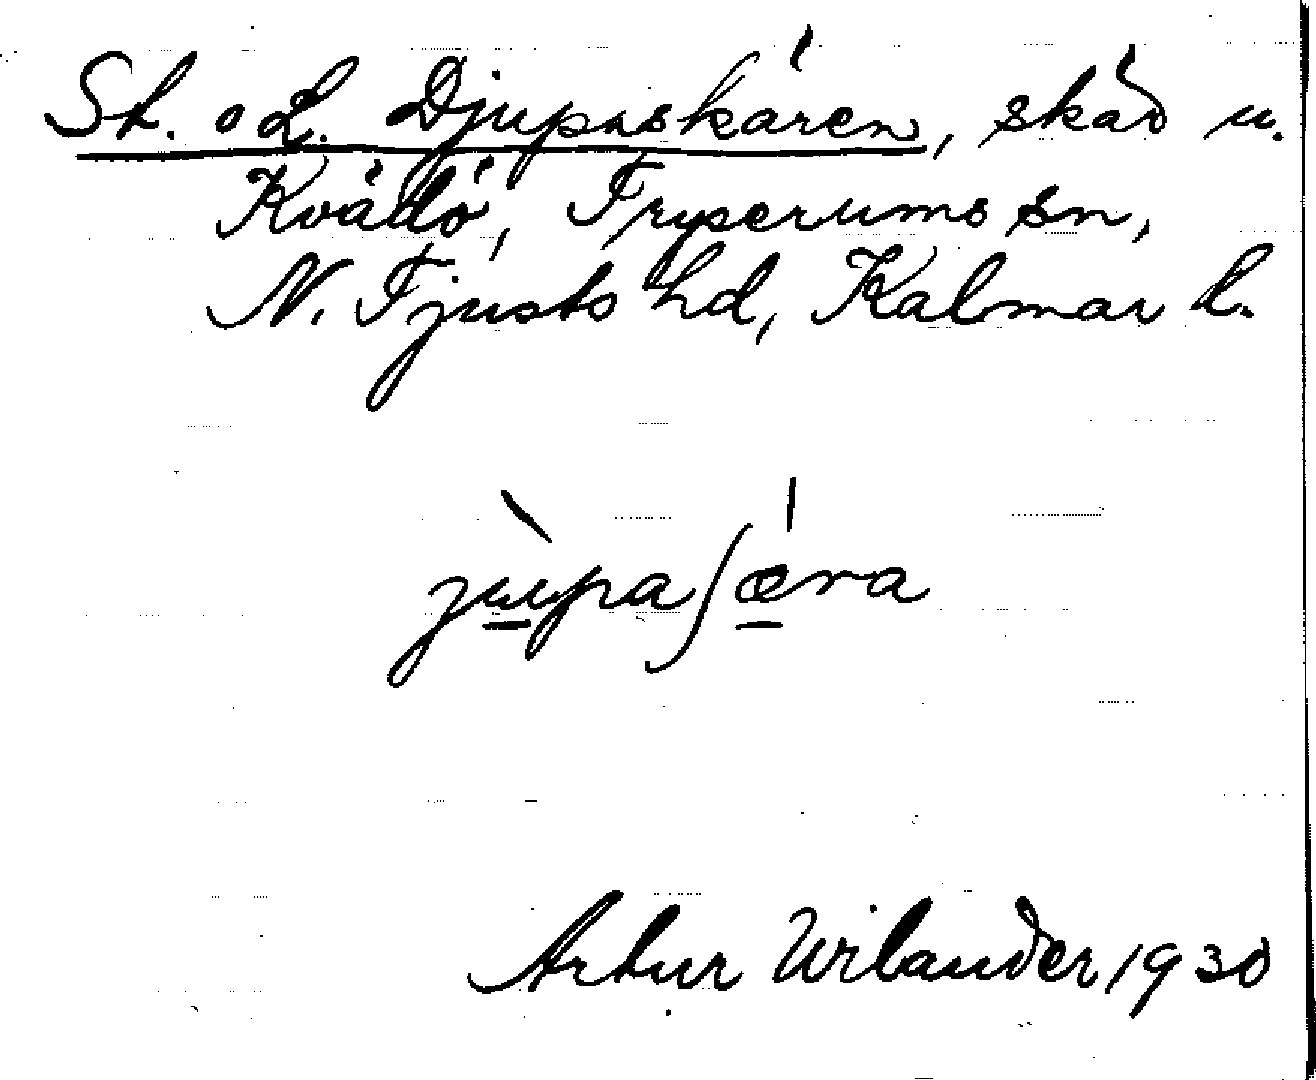 St. o L. Djupasskären, skär u.
Kvädö, Tryserums sn,
N. Tjusts hd, Kalmar l.
jùpaʃǽra
Artur Wilander 1930